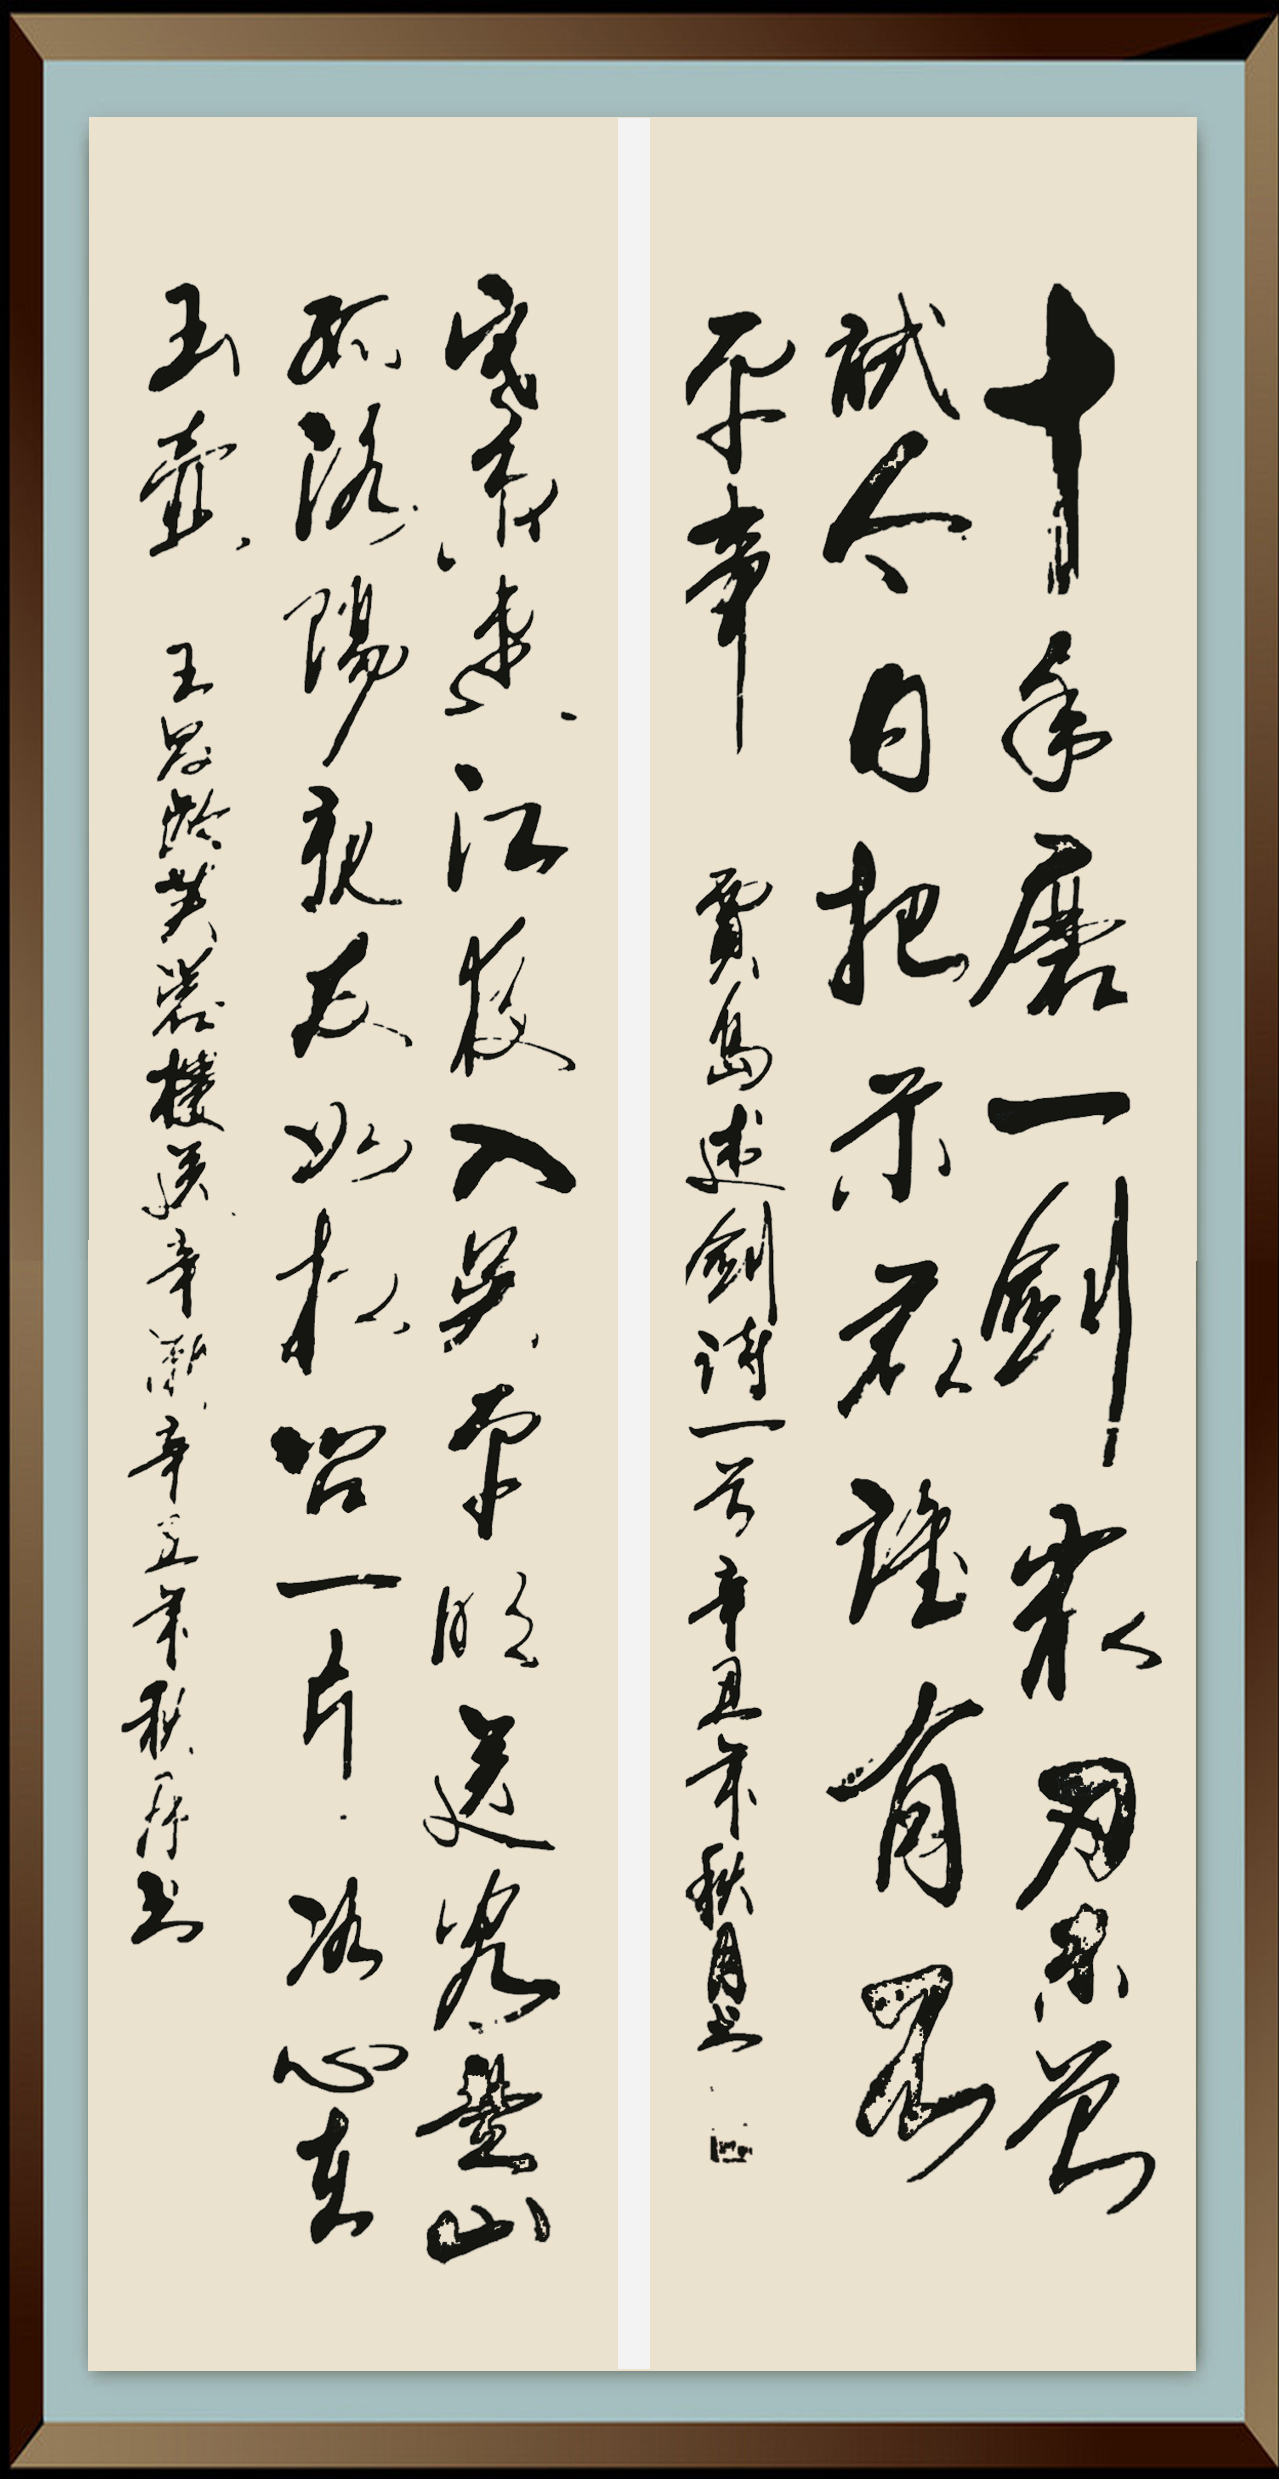 十年磨一劍霜刃未曾
試今日把示君誰有不
平事 賈島述劍詩一首辛丑年秋月书
寒雨連江夜入吳平明送客楚山
孤洛陽親友如相問一片冰心在
玉壺 王昌齡芙蓉樓送辛漸辛丑年秋书